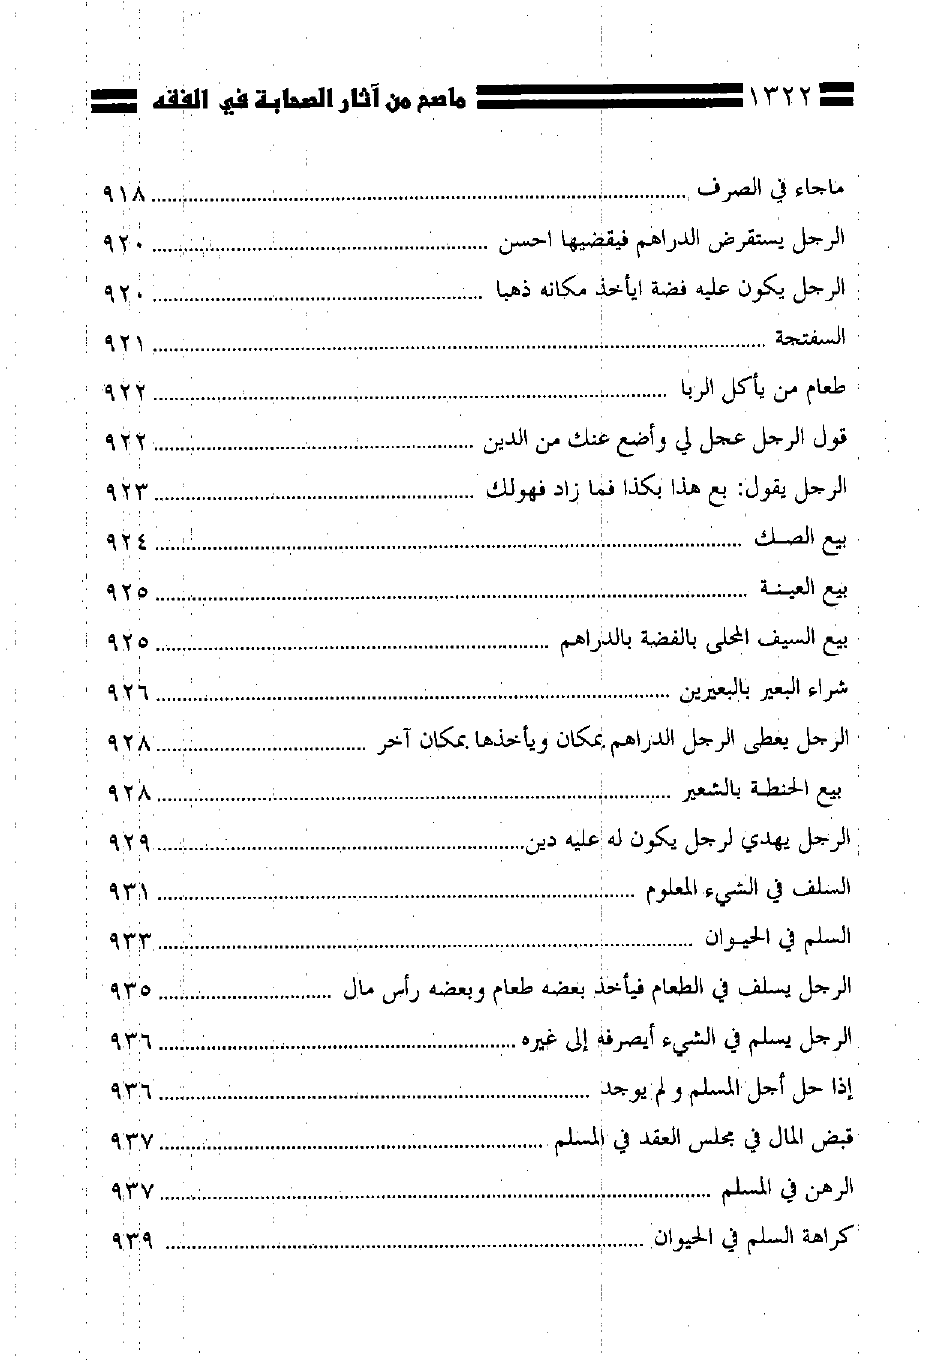 ١٣٢٢ ماصح من آثار الصحابة في الفقه
ماجاء في الصرف ........ ٩١٨
الرجل يستقرض الدراهم فيقضيها احسن ........ ٩٢٠
الرجل يكون عليه فضة ايأخذ مكانه ذهبا ........ ٩٢٠
السفتجة ........ ٩٢١
طعام من يأكل الربا ........ ٩٢٢
قول الرجل عجل لي وأضع عنك من الدين ........ ٩٢٢
الرجل يقول: بع هذا بكذا فما زاد فهولك ........ ٩٢٣
بيع الصك ........ ٩٢٤
بيع العينة ........ ٩٢٥
بيع السيف المحلى بالفضة بالدراهم ........ ٩٢٥
شراء البعير بالبعيرين ........ ٩٢٦
الرجل يعطى الرجل الدراهم بمكان ويأخذها بمكان آخر ........ ٩٢٨
بيع الحنطة بالشعير ........ ٩٢٨
الرجل يهدي لرجل يكون له عليه دين ........ ٩٢٩
السلف في الشيء المعلوم ........ ٩٣١
السلم في الحيوان ........ ٩٣٣
الرجل يسلف في الطعام فيأخذ بعضه طعام وبعضه رأس مال ........ ٩٣٥
الرجل يسلم في الشيء أيصرفه إلى غيره ........ ٩٣٦
إذا حل أجل المسلم و لم يوجد ........ ٩٣٦
قبض المال في مجلس العقد في المسلم ........ ٩٣٧
الرهن في المسلم ........ ٩٣٧
كراهة السلم في الحيوان ........ ٩٣٩